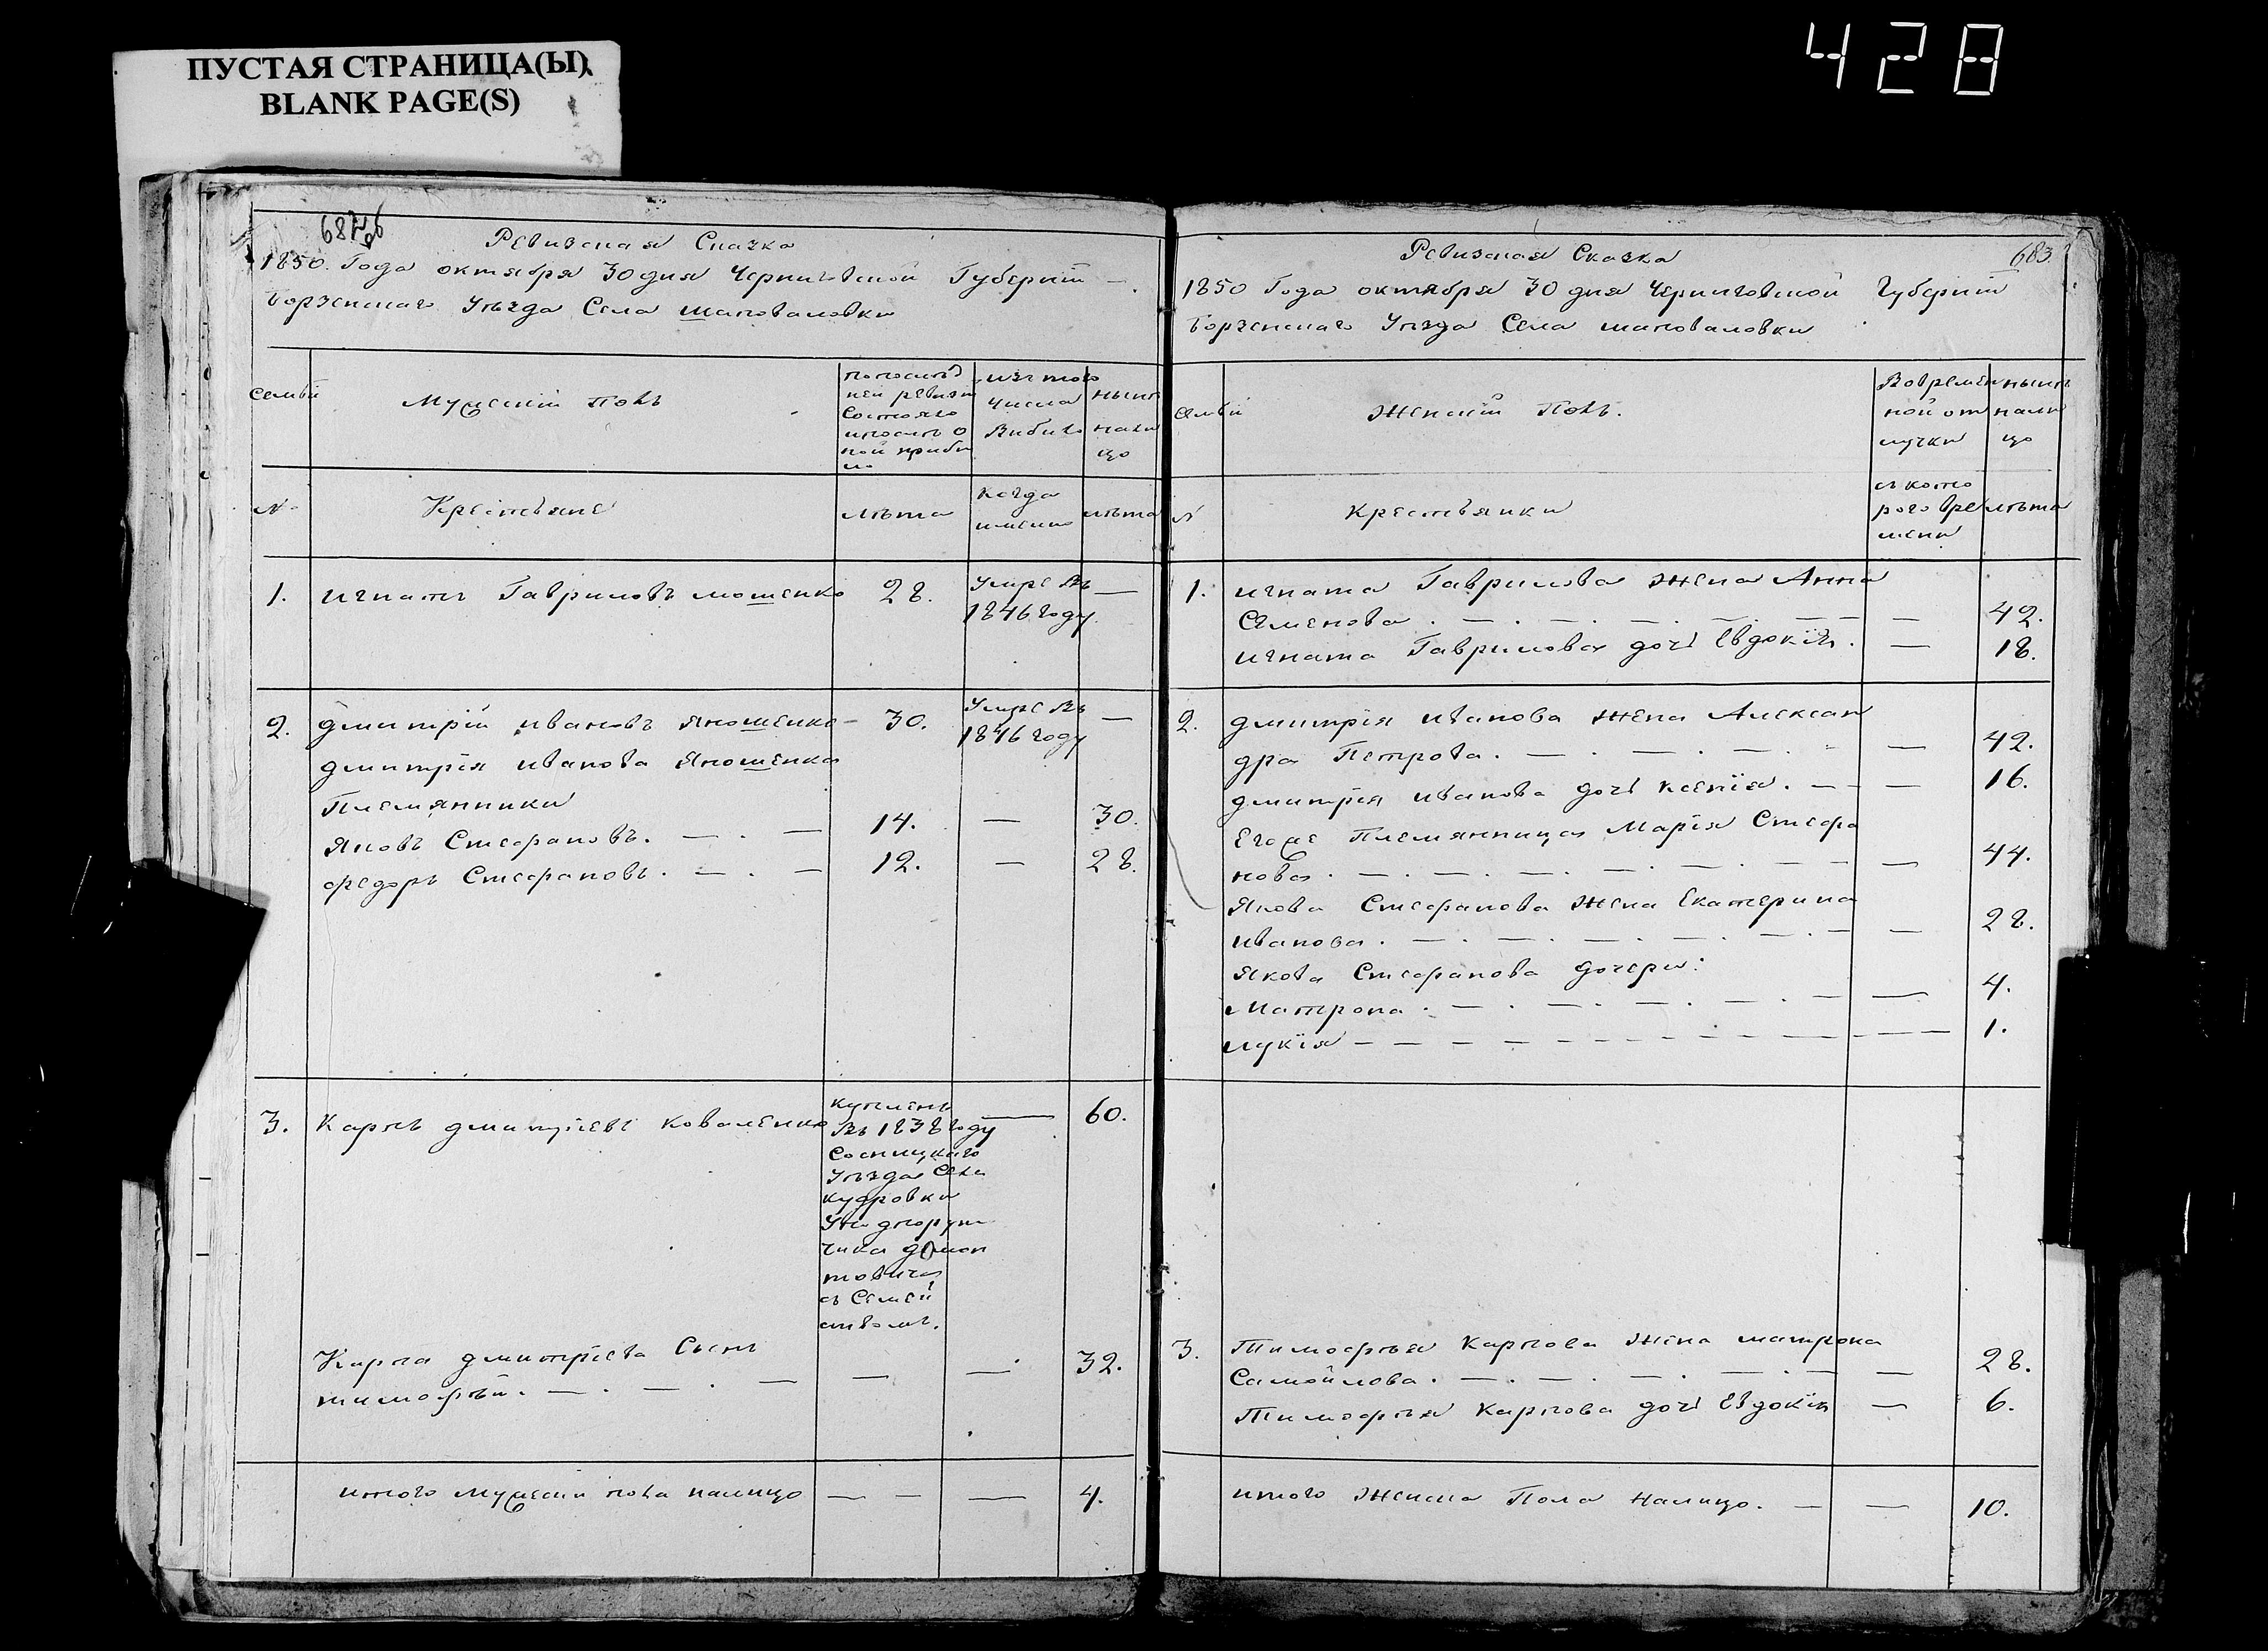 428
ПУСТАЯ СТРАНИЦА(Ы)
BLANK PAGE(S)
Ревизская Сказка
1850. Года октября 30 дня Черниговской Губернiи
Борзенскаго Уѣзда Села Шаповаловки
Семьи
Мужескiй Полъ
По послѣд
ней ревизiи
Состояло
и послѣ о
ной прибы
ло
изъ того
числа
Выбыло
нынѣ
нали
цо
№
Крестьяне
лѣта
Когда
именно
лѣта
1. Игнатъ Гавриловъ Мошенко 28. Умре Въ —
1846 году.
2. Дмитрiй Ивановъ Яношенко — 30. Умре Въ —
1846 году
Дмитрiя Иванова Яношенка
Племянники
Яковъ Стефановъ. — . — 14. — 30.
Федоръ Стефановъ. — . — 12. — 28.
3. Карпъ Дмитрiевъ Коваленко Купленъ — 60.
Въ 1838 году
Сосницкаго
Уѣзда Села
Кудровки
У подпору
чика Домон
товича
съ Семей
ствомъ.
Карпа Дмитрiева Сынъ
Тимофѣй. — . — . — — — 32.
Итого Мужеска пола налицо — — — 4.
Ревизская Сказка
683
1850 Года октября 30 дня Черниговской Губернiи
Борзенскаго Уѣзда Села Шаповаловки
Семьи
Женскiй Полъ.
Во времен
ной от
лучки
нынѣ
нали
цо
№
Крестьянки
съ кото
рого вре
мени
лѣта
1. Игната Гаврилова Жена Анна
Семенова . — . — . — . — — — 42.
Игната Гаврилова дочь Евдокiя. — 18.
2. Дмитрiя Иванова Жена Алексан
дра Петрова. — . — . — . — 42.
Дмитрiя Иванова дочь Ксенiя. — — — 16.
Егоже Племянница Марiя Стефа
нова. — . — . — . — . — — — 44.
Якова Стефанова Жена Екатерина
Иванова. — . — . — . — . — . — — 28.
Якова Стефанова дочери:
Матрона . — . — . — . — . — — 4.
Лукiя — — — — — — — — — — 1.
3. Тимофѣя Карпова Жена Матрона
Самойлова. — . — . — . — . — — 28.
Тимофѣя Карпова дочь Евдокiя — 6.
Итого Женска Пола Налицо. — — 10.